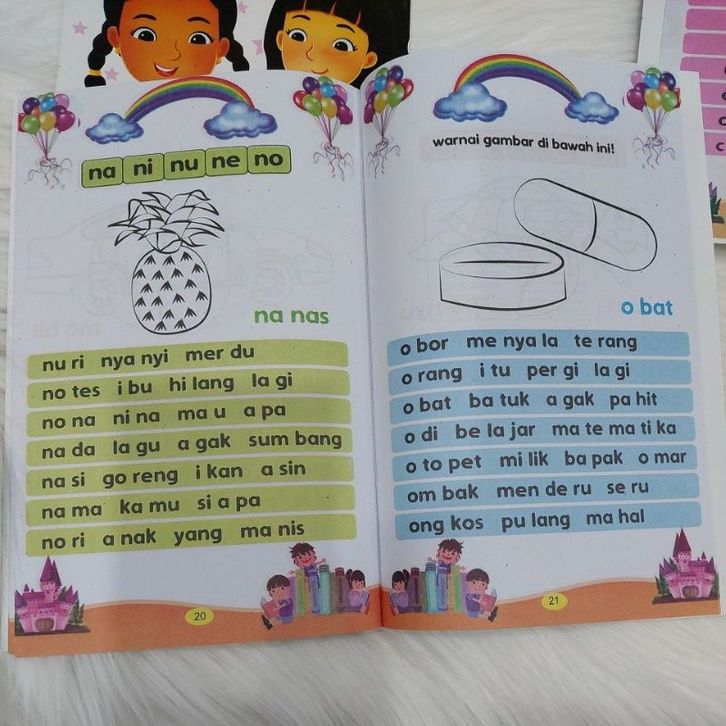 na ni nu ne no
na nas
nu ri nya nyi mer du
no tes i bu hi lang la gi
no na ni na ma u a pa
na da la gu a gak sum bang
na si go reng i kan a sin
na ma ka mu si a pa
no ri a nak yang ma nis
20
warnai gambar di bawah ini!
o bat
o bor me nya la te rang
o rang i tu per gi la gi
o bat ba tuk a gak pa hit
o di be la jar ma te ma ti ka
o to pet mi lik ba pak o mar
om bak men de ru se ru
ong kos pu lang ma hal
21